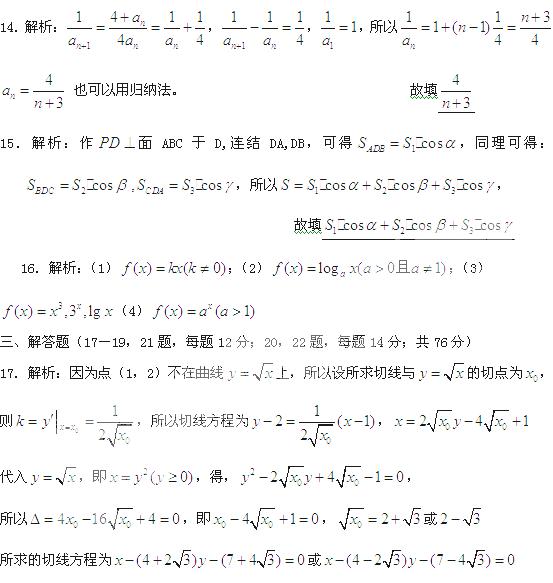 14. 解析：1/a_{n+1} = (4+a_n)/(4a_n) = 1/a_n + 1/4，1/a_{n+1} − 1/a_n = 1/4，1/a_1 = 1，所以 1/a_n = 1+(n−1)1/4 = (n+3)/4
a_n = 4/(n+3) 也可以用归纳法。 故填 4/(n+3)
15. 解析：作 PD⊥面 ABC 于 D,连结 DA,DB，可得 S_{ADB} = S_1 cos α，同理可得：
S_{BDC} = S_2 cos β , S_{CDA} = S_3 cos γ，所以 S = S_1 cos α + S_2 cos β + S_3 cos γ，
故填 S_1 cos α + S_2 cos β + S_3 cos γ
16. 解析：(1) f(x) = kx(k ≠ 0)；(2) f(x) = log_a x(a > 0且a ≠ 1)；(3)
f(x) = x^3, 3^x, lg x (4) f(x) = a^x (a > 1)
三、解答题（17—19，21 题，每题 12 分；20，22 题，每题 14 分；共 76 分）
17. 解析：因为点（1，2）不在曲线 y = √x 上，所以设所求切线与 y = √x 的切点为 x_0，
则 k = y′|_{x=x_0} = 1/(2√x_0)，所以切线方程为 y−2 = 1/(2√x_0) (x−1)，x = 2√x_0 y − 4√x_0 + 1
代入 y = √x，即 x = y^2 (y ≥ 0)，得，y^2 − 2√x_0 y + 4√x_0 − 1 = 0，
所以 Δ = 4x_0 − 16√x_0 + 4 = 0，即 x_0 − 4√x_0 + 1 = 0，√x_0 = 2+√3 或 2−√3
所求的切线方程为 x−(4+2√3)y−(7+4√3) = 0 或 x−(4−2√3)y−(7−4√3) = 0